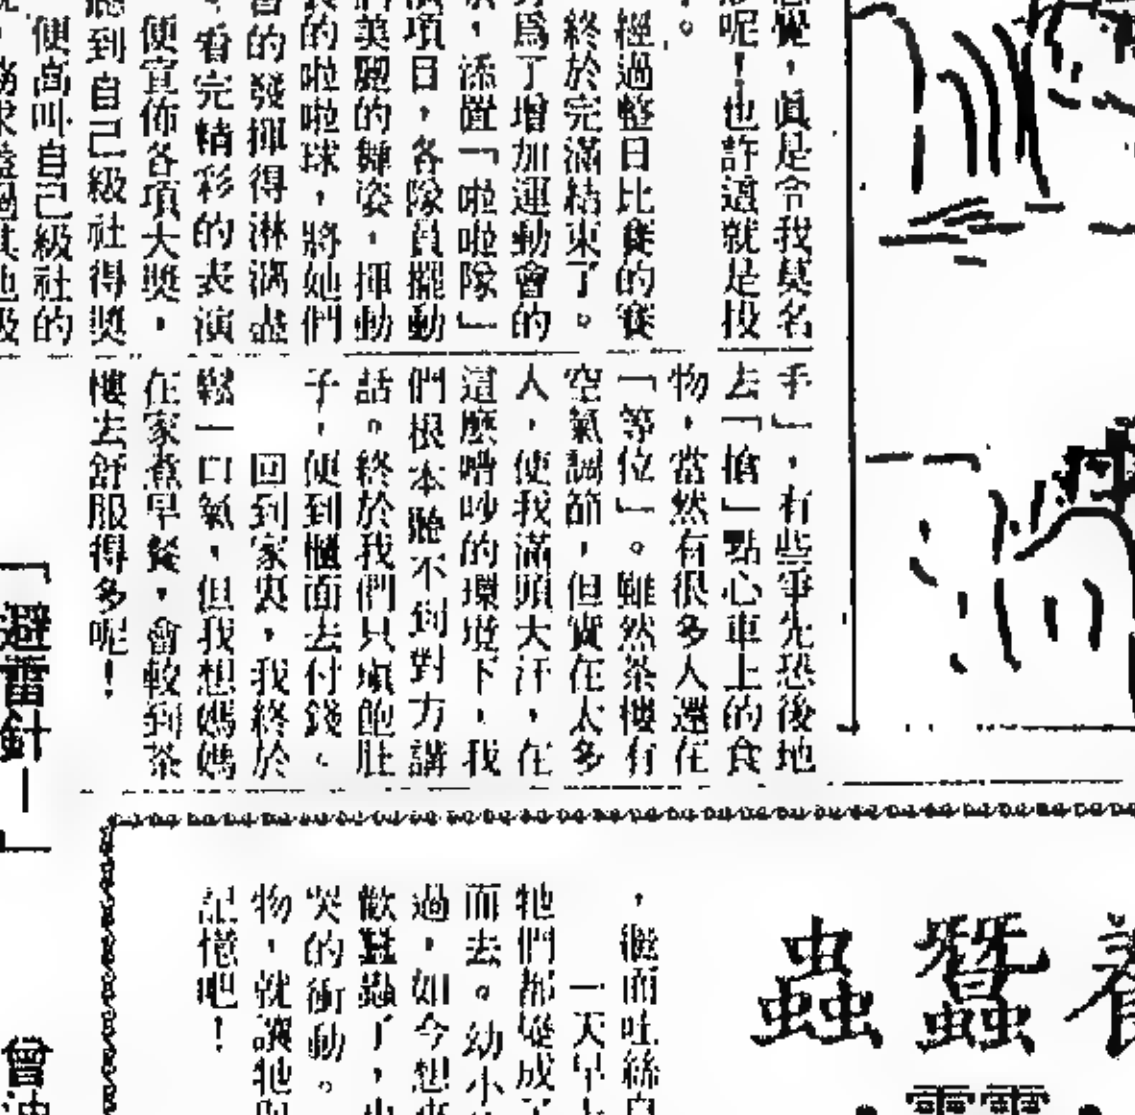 覺，眞是令我莫名
呢！也許這就是投
經過整日比賽的賽
終於完滿結束了。
爲了增加運動會的
，添置「啦啦隊」
項目，各隊員擺動
美麗的舞姿，揮動
的啦啦球，將她們
的發揮得淋漓盡
，看完精彩的表演
便宣佈各項大獎，
到自己級社得獎
便高叫自己級社的
手」，有些爭先恐後地
去「搶」點心車上的食
物，當然有很多人還在
「等位」。雖然茶樓有
空氣調節，但實在太多
人，使我滿頭大汗，在
這麼嘈吵的環境下，我
們根本聽不到對方講
話。終於我們只塡飽肚
子，便到櫃面去付錢。
回到家裏，我終於
鬆一口氣，但我想媽媽
在家煮早餐，會較到茶
樓去舒服得多呢！
「避雷針－」
曾
養蠶蟲
，繼而吐絲
一天早
牠們都變成
而去。幼小
過，如今想
歡蠶蟲了，
哭的衝動。
物，就讓牠
記憶吧！